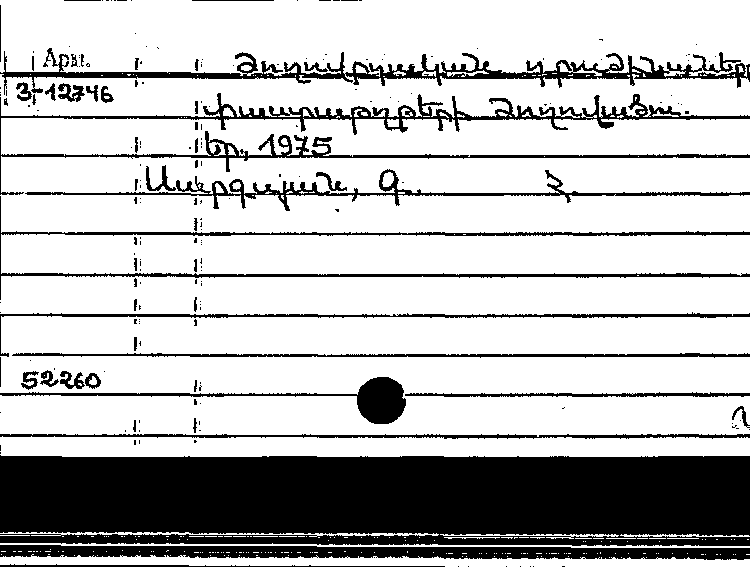 Арм.
Ժողովրդական դրոշինաների
3-12746
փաստաթղթերի ժողովածու.
Եր., 1975
Սարգսյան, Գ. Հ.
52260